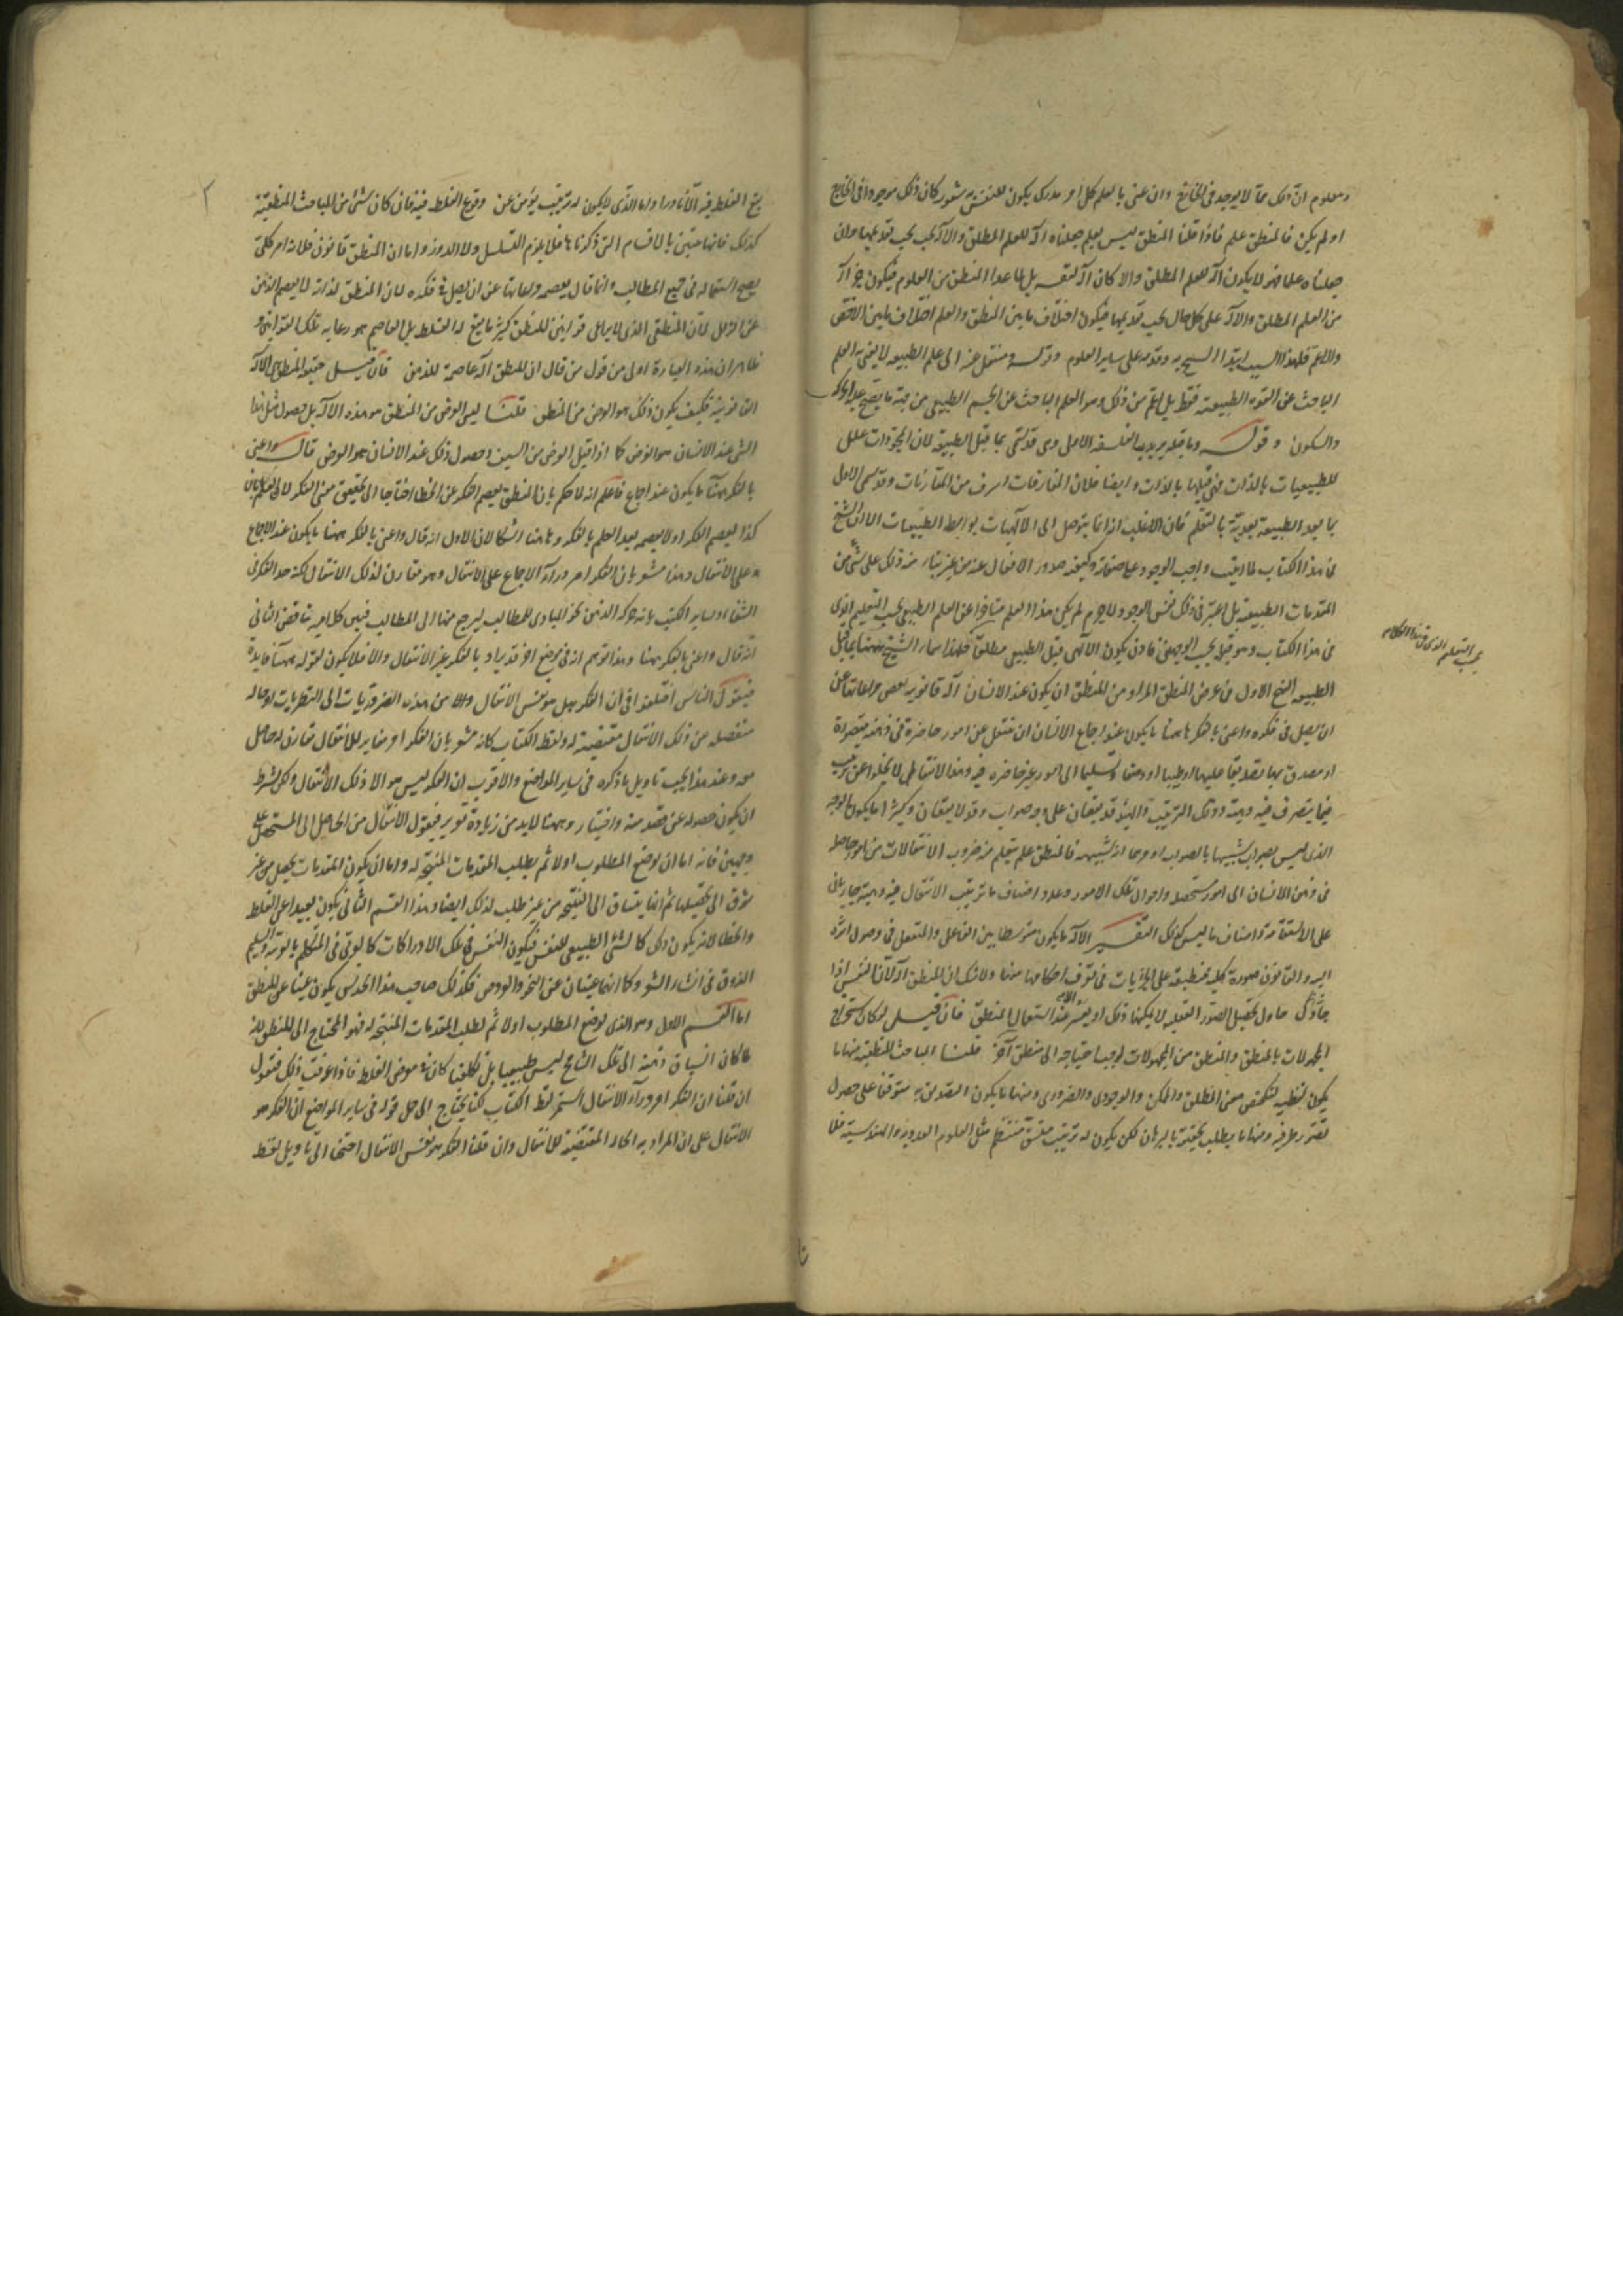 ومعلوم ان ذلك مما لا يوجد في الخارج وان عنى بالعلم كل امر مدرك يكون للنفس به شعور كان ذلك موجودا في الخارج
او لم يكن فالمنطق علم فاذا قلنا المنطق ليس بعلم جعلناه آلة للعلم المطلق والآلة يجب تقديمها وان
جعلناه علما فهو لا يكون آلة للعلم المطلق والا كان آلة لنفسه بل لما عدا المنطق من العلوم فيكون جزء آلة
من العلم المطلق والآلة على كل حال يجب تقديمها فيكون اختلاف ما بين المنطق والعلم اختلاف ما بين الاخص
والاعم فلهذا السبب ابتدأ الشيخ به وقدمه على ساير العلوم وقوله ومنتقل عنه الى علم الطبيعة لا يعني به العلم
الباحث عن القوة الطبيعية فقط بل اعم من ذلك وهو العلم الباحث عن الجسم الطبيعي من جهة ما يصح عليه الحركة
والسكون وقوله وما قبله يريد به الفلسفة الاولى وهي قد تسمى بما قبل الطبيعة لان المجردات علل
للطبيعيات بالذات فهي قبلها بالذات وايضا فلان المفارقات اشرف من المقارنات وقد تسمى الاولى
بما بعد الطبيعة بعدية بالتعلم فان الاغلب انه انما يتوصل الى الالهيات بواسطة الطبيعيات الا ان الشيخ
في هذا الكتاب لما اثبت واجب الوجود على صفاته وكيفية صدور الافعال عنه من غير بناء منه ذلك على شيء من
المقدمات الطبيعية بل اعتبر في ذلك نفس الوجود ولا جرم لم يكن هذا العلم متاخرا عن العلم الطبيعي بحسب التعليم الذي
في هذا الكتاب وهو قبله بحسب الوجهين فاذن يكون الالهي قبل الطبيعي مطلقا فلهذا سماه الشيخ ههنا بما قبل
بحسب التعليم الذي في هذا الكلام
الطبيعة النهج الاول في غرض المنطق المراد من المنطق ان يكون عند الانسان آلة قانونية تعصمه مراعاتها عن
ان يضل في فكره واعني بالفكر هاهنا ما يكون عند اجماع الانسان ان ينتقل عن امور حاضرة في ذهنه متصورة
او مصدق بها تصديقا علميا او ظنيا او وضعا وتسليما الى امور غير حاضرة فيه وهذا الانتقال لا يخلوا عن ترتيب
فيما يتصرف فيه وهيئة وذلك الترتيب والهيئة قد يقعان على وجه صواب وقد لا يقعان وكثيرا ما يكون الوجه
الذي ليس بصواب شبيها بالصواب او موهما انه شبيه به فالمنطق علم يتعلم منه ضروب الانتقالات من امور حاصلة
في ذهن الانسان الى امور مستحصلة واحوال تلك الامور وعدد اصناف ما ترتيب الانتقال فيه وهيئته جاريان
على الاستقامة واصناف ما ليس كذلك التفسير الآلة ما يكون متوسطا بين الفاعل والمنفعل في وصول اثره
اليه والقانون صورة كلية منطبقة على الجزئيات في تعرف احكامها منها ولا شك ان المنطق آلة لان النفس اذا
حاول تحصيل الصور العقلية لا يمكنها ذلك او يعسر عند استعمال المنطق فان قيل لو كان استخراج
المجهولات بالمنطق والمنطق من المجهولات لوجب احتياجه الى منطق آخر قلنا المباحث المنطقية منها ما
يكون لفظية لتلخيص معنى المطلق والممكن والوجودي والضروري ومنها ما يكون التصديق به متوقفا على حصول
تصور طرفيه ومنها ما يطلب تحقيقه بالبرهان لكن يكون له ترتيب متسق منتظم مثل العلوم العددية والهندسية فلا
٢
يقع الغلط فيه الا نادرا واما الذي لا يكون له ترتيب يؤمن عن وقوع الغلط فيه فان كان شيء من المباحث المنطقية
كذلك فانها متبين بالاقسام التي ذكرناها فلا يلزم التسلسل ولا الدور واما ان المنطق قانون فلانه امر كلي
يصح استعماله في جميع المطالب وانما قال يعصمه مراعاتها عن ان يضل في فكره لان المنطق لذاته لا يعصم الذهن
عن الزلل لان المنطقي الذي لا يراعي قوانين المنطق كثيرا ما يقع له الغلط بل العاصم هو رعاية تلك القوانين و
ظاهر ان هذه العبارة اولى من قول من قال ان المنطق آلة عاصمة للذهن فان قيل حقيقة المنطق هي الآلة
القانونية فكيف يكون ذلك هو الغرض من المنطق قلنا ليس الغرض من المنطق هو هذه الآلة بل حصول مثل هذا
الشيء عند الانسان هو الغرض كما اذا قيل الغرض من السيف وحصول ذلك عند الانسان هو الغرض قال واعني
بالفكر ههنا ما يكون عند اجماع فاعلم انه لما حكم بان المنطق يعصم الفكر عن الخطا احتاج الى تحقيق معنى الفكر لان العلم بان
كذا يعصم الفكر او لا يعصمه بعد العلم بالفكر وهاهنا اشكالان الاول انه قال واعني بالفكر ههنا ما يكون عند الاجماع
على الانتقال وهذا مشعر بان الفكر امر وراء الاجماع على الانتقال وهو مقارن لذلك الانتقال لكنه حد الفكر في
الشفاء وساير الكتب بانه حركة الذهن نحو المبادي للمطالب ليرجع منها الى المطالب فبين كلاميه تناقض الثاني
انه قال واعني بالفكر ههنا وهذا توهم انه في موضع آخر قد يراد بالفكر غير الانتقال والا فلا يكون لقوله ههنا فايدة
فنقول الناس اختلفوا في ان الفكر هل هو نفس الانتقال والا من هذه الضروريات الى النظريات او حالة
منفصلة من ذلك الانتقال مقتضية له ولفظ الكتاب كانه مشعر بان الفكر امر مغاير للانتقال مقارن له حاصل
معه وعند هذا يجب تاويل ما ذكره في ساير المواضع والاقرب ان الفكر ليس هو الا ذلك الانتقال ولكن بشرط
ان يكون حصوله عن قصد منه واختيار وههنا لابد من زيادة تقرير فنقول الانتقال من الحاصل الى المستحصل على
وجهين فانه اما ان يوضع المطلوب اولا ثم يطلب المقدمات المنتجة له واما ان يكون المقدمات يحصل من غير
شوق الى تحصيلها ثم انها ينساق الى النتيجة من غير طلب لذلك ايضا وهذا القسم الثاني يكون بعيدا عن الغلط
والخطا لانه يكون ذلك كالشيء الطبيعي للنفس فيكون النفس في تلك الادراكات كالبدوي في المتكلم بالعربية والسليم
الذوق في انشاء الشعر وكما انهما غنيان عن النحو والعروض فكذلك صاحب هذا الحدس يكون غنيا عن المنطق
اما القسم الاول وهو الذي يوضع المطلوب اولا ثم يطلب المقدمات المنتجة له فهو المحتاج الى المنطق لانه
لما كان انسياق ذهنه الى تلك النتايج ليس طبيعيا بل تكلفيا كان في معرض الغلط فاذا عرفت ذلك فنقول
ان قلنا ان الفكر امر وراء الانتقال استمر لفظ الكتاب لكنا يحتاج الى حمل قوله في ساير المواضع ان الفكر هو
الانتقال على ان المراد به الحالة المقتضية للانتقال وان قلنا الفكر هو نفس الانتقال احتجنا الى تاويل لفظ